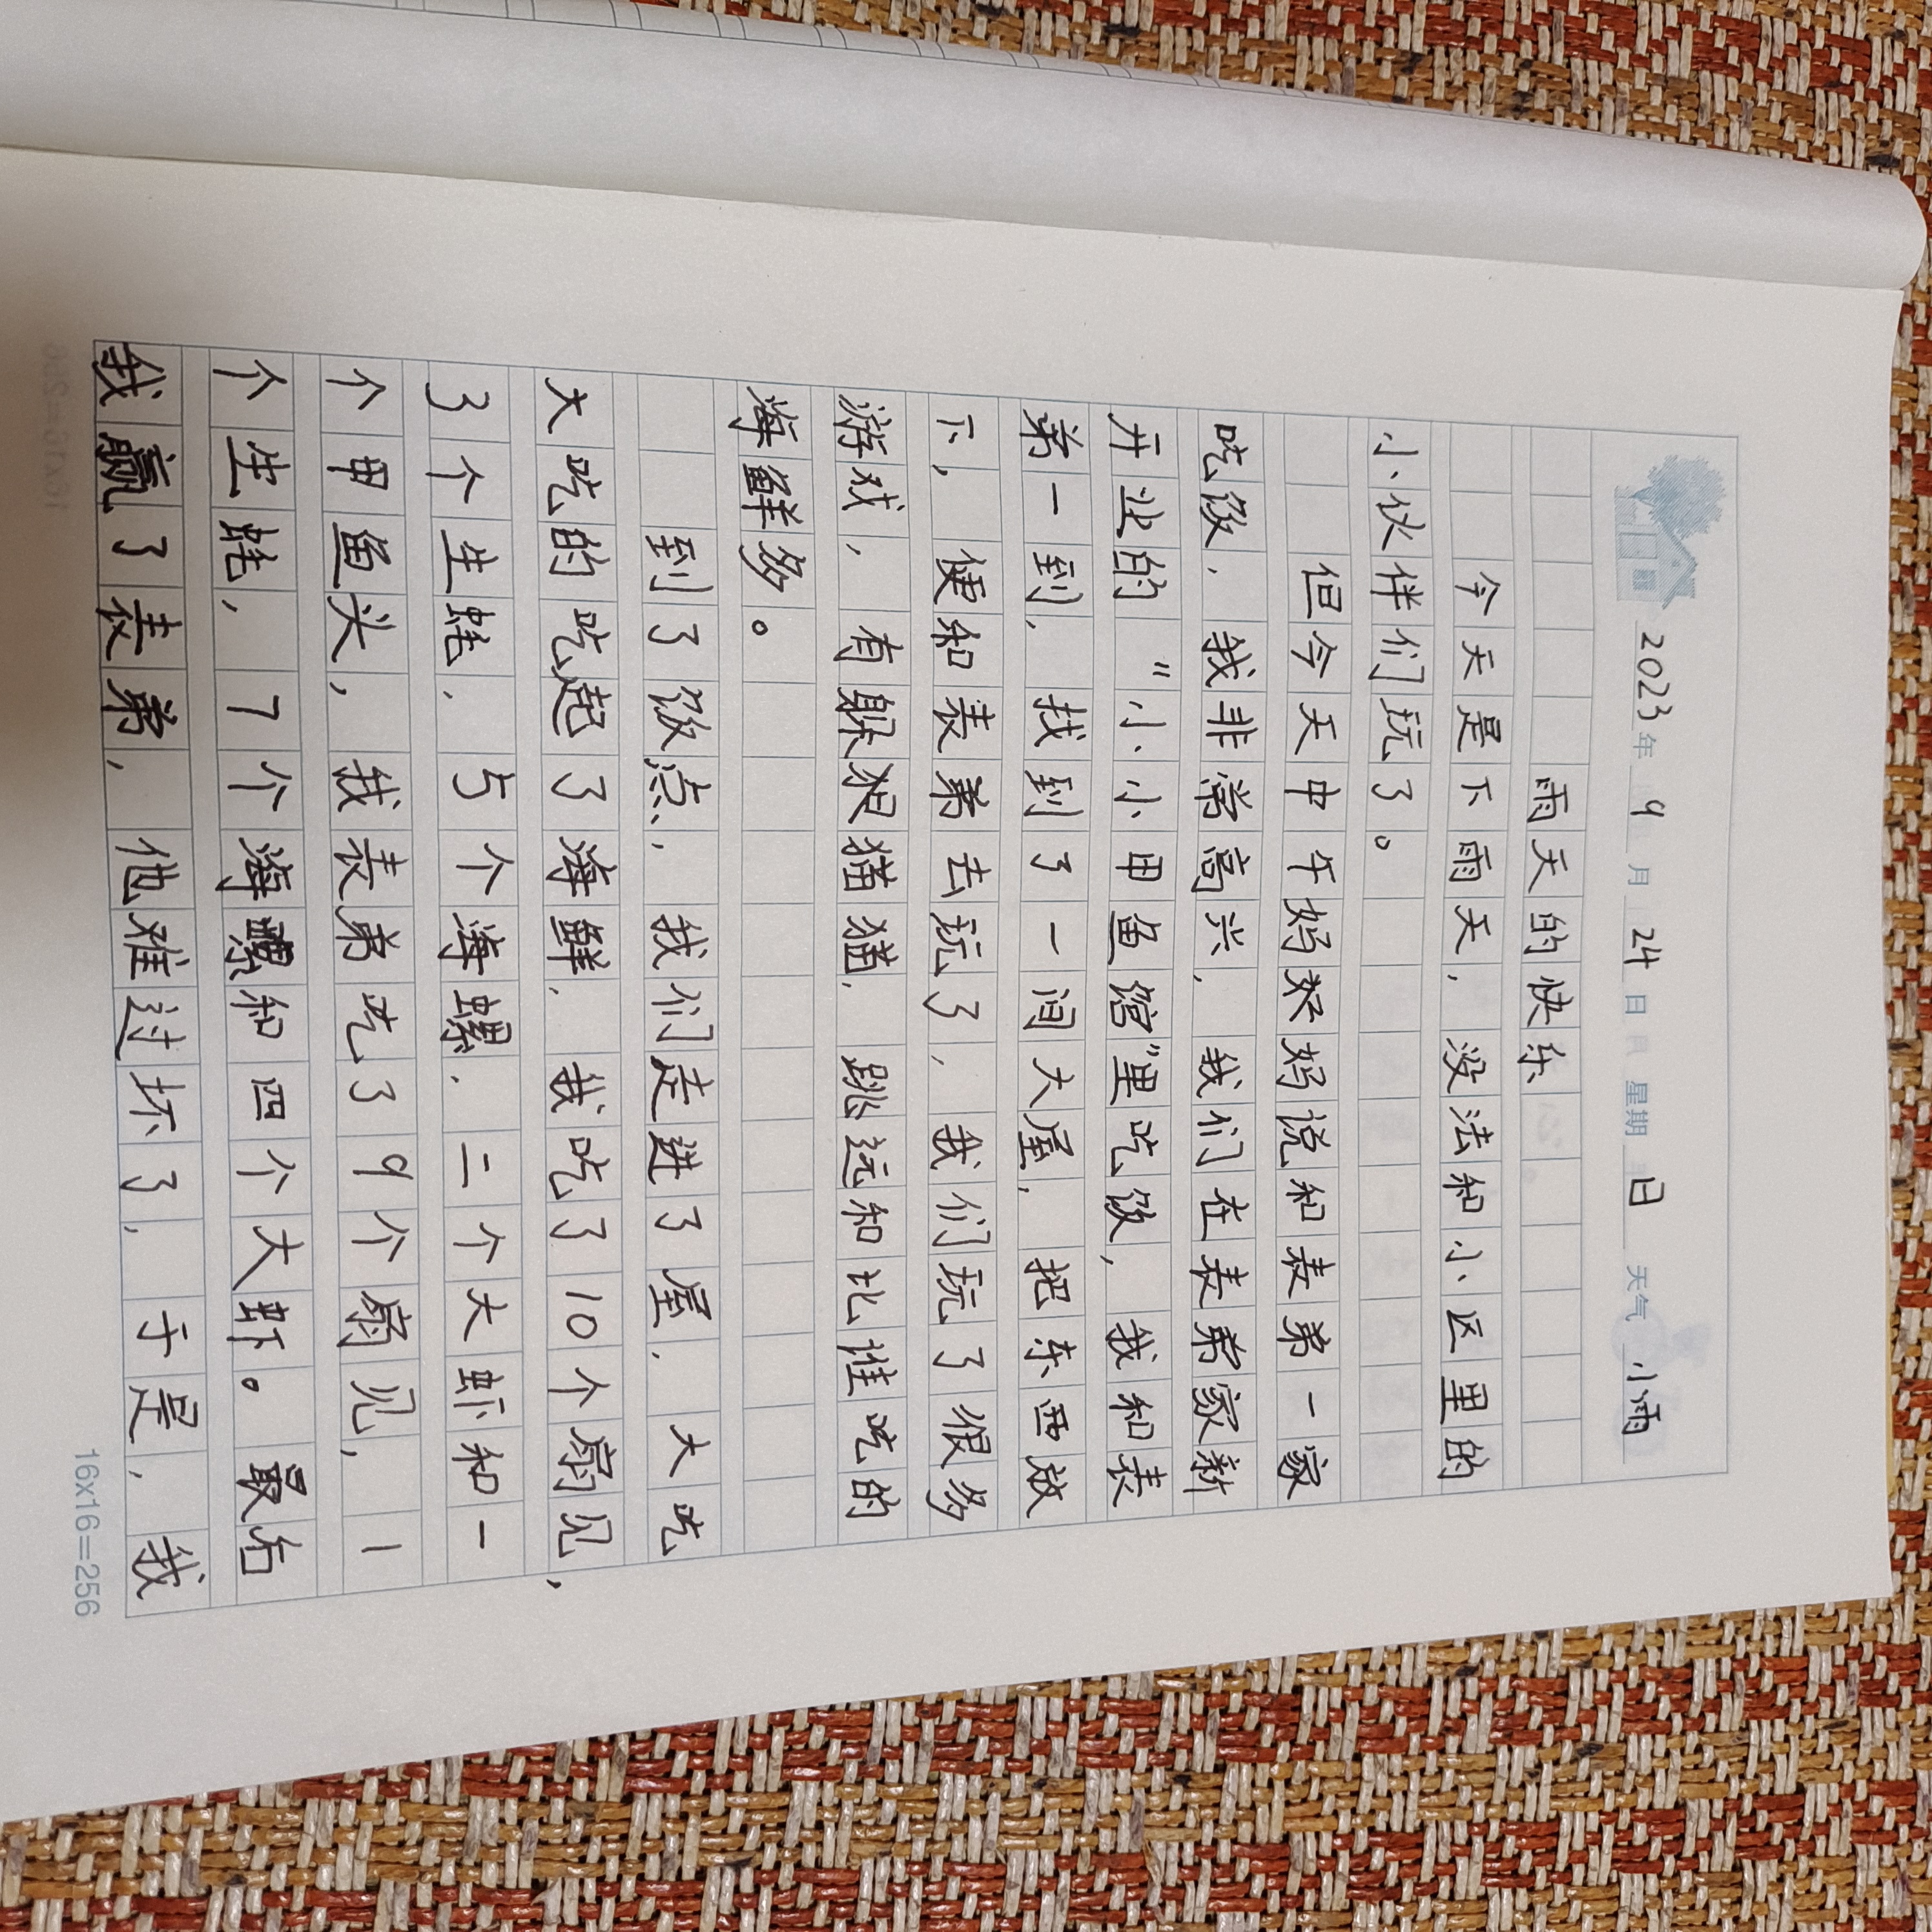 2023年 9 月 24 日 星期 日 天气 小雨
雨天的快乐
今天是下雨天，没法和小区里的
小伙伴们玩了。
但今天中午妈妈说和表弟一家
吃饭，我非常高兴，我们在表弟家新
开业的“小小甲鱼馆”里吃饭，我和表
弟一到，找到了一间大屋，把东西放
下，便和表弟去玩了，我们玩了很多
游戏，有躲猫猫，跳远和比谁吃的
海鲜多。
到了饭点，我们走进了屋，大吃
大吃的吃起了海鲜，我吃了10个扇贝，
3个生蚝，5个海螺，二个大虾和一
个甲鱼头，我表弟吃了9个扇贝，1
个生蚝，7个海螺和四个大虾。最后
我赢了表弟，他难过坏了，于是，我
16x16=256